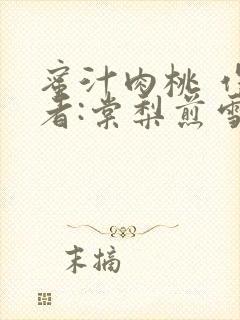 蜜汁肉桃 作
者:棠梨煎雪
末摘